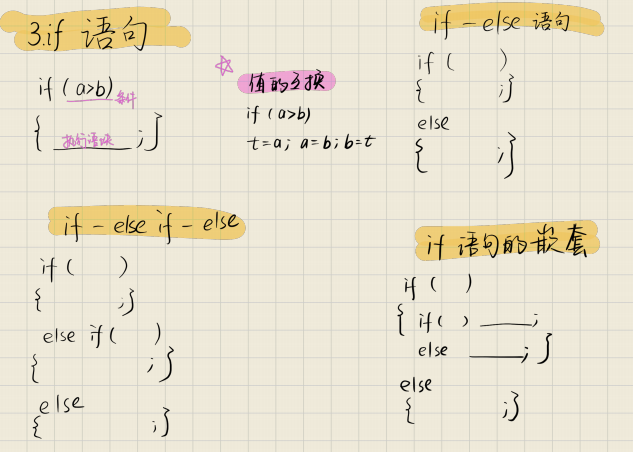 3.if 语句
if (a>b) 条件
{ 执行语块 ;}
☆ 值的互换
if (a>b)
t=a; a=b; b=t
if-else 语句
if ( )
{ ;}
else
{ ;}
if-else if-else
if ( )
{ ;}
else if( )
{ ;}
else
{ ;}
if 语句的嵌套
if ( )
{ if( ) ____;
else ____; }
else
{ ;}